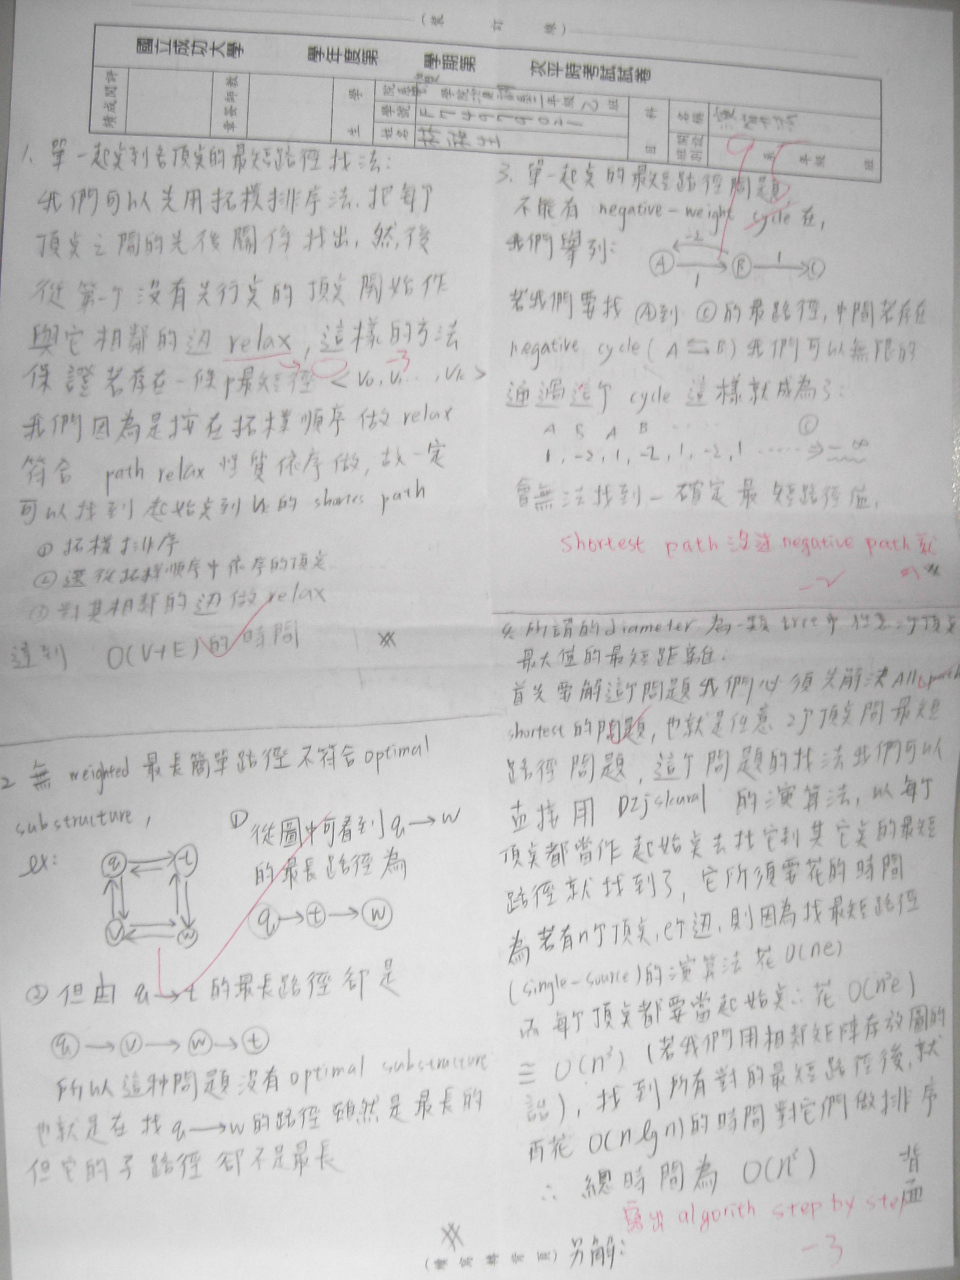 (裝 訂 線)
國立成功大學 學年度第 學期第 次平時考試試卷
學號 F74979021
姓名
科目 名稱 演算法
95
1. 單一起點到各頂點的最短路徑找法:
我們可以先用拓樸排序法,把每个
頂點之間的先後關係找出,然後
從第一个沒有先行點的頂點開始作
與它相鄰的边 relax,這樣的方法
-3
保證若存在一條p最短徑 < V0, V1 ..., Vk >
我們因為是按在拓樸順序做 relax
符合 path relax 性質依序做,故一定
可以找到起始點到 Vk 的 shortes path
① 拓樸排序
② 選取拓樸順序中依序的頂點
③ 對其相鄰的边做 relax
達到 O(V+E) 的時間
2 無 weighted 最長簡單路徑不符合 optimal
substructure,
ex: q t v w
① 從圖中可看到 q→w
的最長路徑為
q→t→w
② 但由 q→t 的最長路徑卻是
q→v→w→t
所以這种問題沒有optimal substructure
也就是在找 q→w的路徑雖然是最長的
但它的子路徑卻不是最長
3. 單一起點的最短路徑問題
不能有 negative-weight cycle在,
我們舉列: A B C -2 1 1
若我們要找 A到 C的最路徑,中間若存在
negative cycle (A ⇆ B) 我們可以無限的
通過這个 cycle 這樣就成為了:
A B A B ..... C
1, -2, 1, -2, 1, -2, 1 ..... ⇒ -∞
會無法找到一確定最短路徑值,
shortest path 沒過 negative path 就
-2
4. 所謂的diameter 為一顆 tree 中任意二个頂點
最大值的最短距離:
首先要解這个問題我們必須先解決 All path
shortest的問題,也就是任意 2个頂點間最短
路徑問題,這个問題的找法我們可以
直接用 Dijskural 的演算法,以每个
頂點都當作起始點去找它到其它點的最短
路徑就找到了,它所須要花的時間
為若有n个頂點,e个边,則因為找最短路徑
(single-source)的演算法花 O(ne)
而每个頂點都要當起始點∴花 O(n²e)
≡ O(n³) (若我們用相鄰矩陣存放圖的
話),找到所有對的最短路徑後,就
再花 O(n lg n)的時間對它們做排序
∴ 總時間為 O(n³) 背面
寫出 algorith step by step
-3
另解: